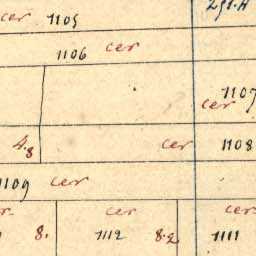 cer 1105
1106 cer
1107
cer
4.8 cer 1108
1109 cer
cer cer
8. 1112 8.2 1111